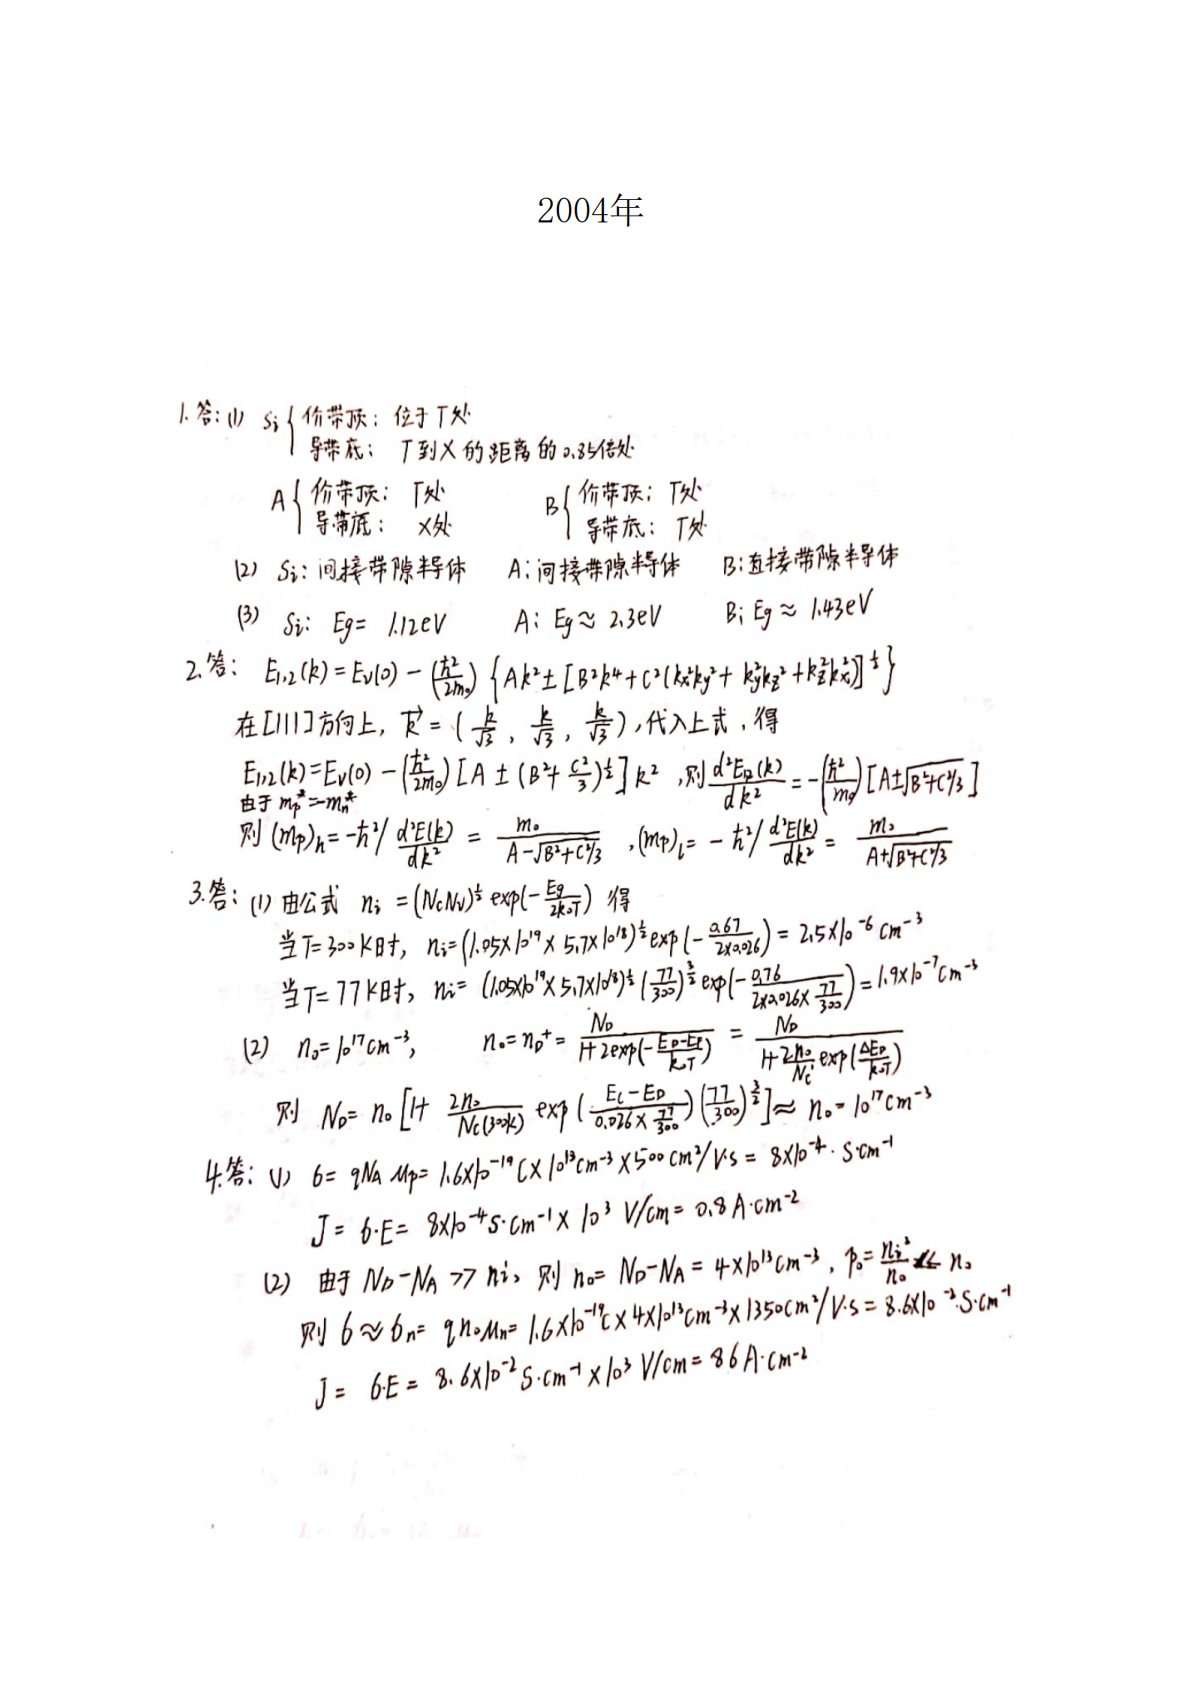 2004年
1.答:(1) Si { 价带顶: 位于Γ处
导带底: Γ到X的距离的0.85倍处
A { 价带顶: Γ处 B { 价带顶: Γ处
导带底: X处 导带底: Γ处
(2) Si: 间接带隙半导体 A: 间接带隙半导体 B: 直接带隙半导体
(3) Si: Eg= 1.12eV A: Eg≈2.3eV B: Eg≈1.43eV
2.答: E₁,₂(k)=Eᵥ(0)-(ħ²/2m₀){Ak²±[B²k⁴+C²(kx²ky²+ky²kz²+kz²kx²)]^½}
在[111]方向上, k⃗=(k/√3, k/√3, k/√3),代入上式,得
E₁,₂(k)=Eᵥ(0)-(ħ²/2m₀)[A±(B²+C²/3)^½]k² ,则 d²E₁,₂(k)/dk²=-(ħ²/m₀)[A±√(B²+C²/3)]
由于 mp*=-mn*
则 (mp)h=-ħ²/ d²E(k)/dk² = m₀/(A-√(B²+C²/3)) ,(mp)l=-ħ²/ d²E(k)/dk² = m₀/(A+√(B²+C²/3))
3.答: (1) 由公式 ni=(NcNv)^½ exp(-Eg/2k₀T) 得
当T=300K时, ni=(1.05×10¹⁹×5.7×10¹⁸)^½ exp(-0.67/(2×0.026))=2.5×10⁻⁶cm⁻³
当T=77K时, ni=(1.05×10¹⁹×5.7×10¹⁸)^½(77/300)^(3/2) exp(-0.76/(2×0.026×77/300))=1.9×10⁻⁷cm⁻³
(2) n₀=10¹⁷cm⁻³, n₀=nD⁺=ND/(1+2exp(-(ED-EF)/k₀T)) = ND/(1+2n₀/Nc exp(ΔED/k₀T))
则 ND=n₀[1+ 2n₀/Nc(300K) exp((Ec-ED)/(0.026×77/300))(77/300)^(3/2)]≈n₀=10¹⁷cm⁻³
4.答: (1) б=qNAμp=1.6×10⁻¹⁹C×10¹³cm⁻³×500cm²/V·s=8×10⁻⁴·S·cm⁻¹
J=б·E=8×10⁻⁴S·cm⁻¹×10³ V/cm=0.8A·cm⁻²
(2) 由于 ND-NA>>ni, 则 n₀=ND-NA=4×10¹³cm⁻³, p₀=ni²/n₀<<n₀
则 б≈бn=qn₀μn=1.6×10⁻¹⁹C×4×10¹³cm⁻³×1350cm²/V·s=8.6×10⁻³·S·cm⁻¹
J=б·E=8.6×10⁻²S·cm⁻¹×10³ V/cm=86A·cm⁻²